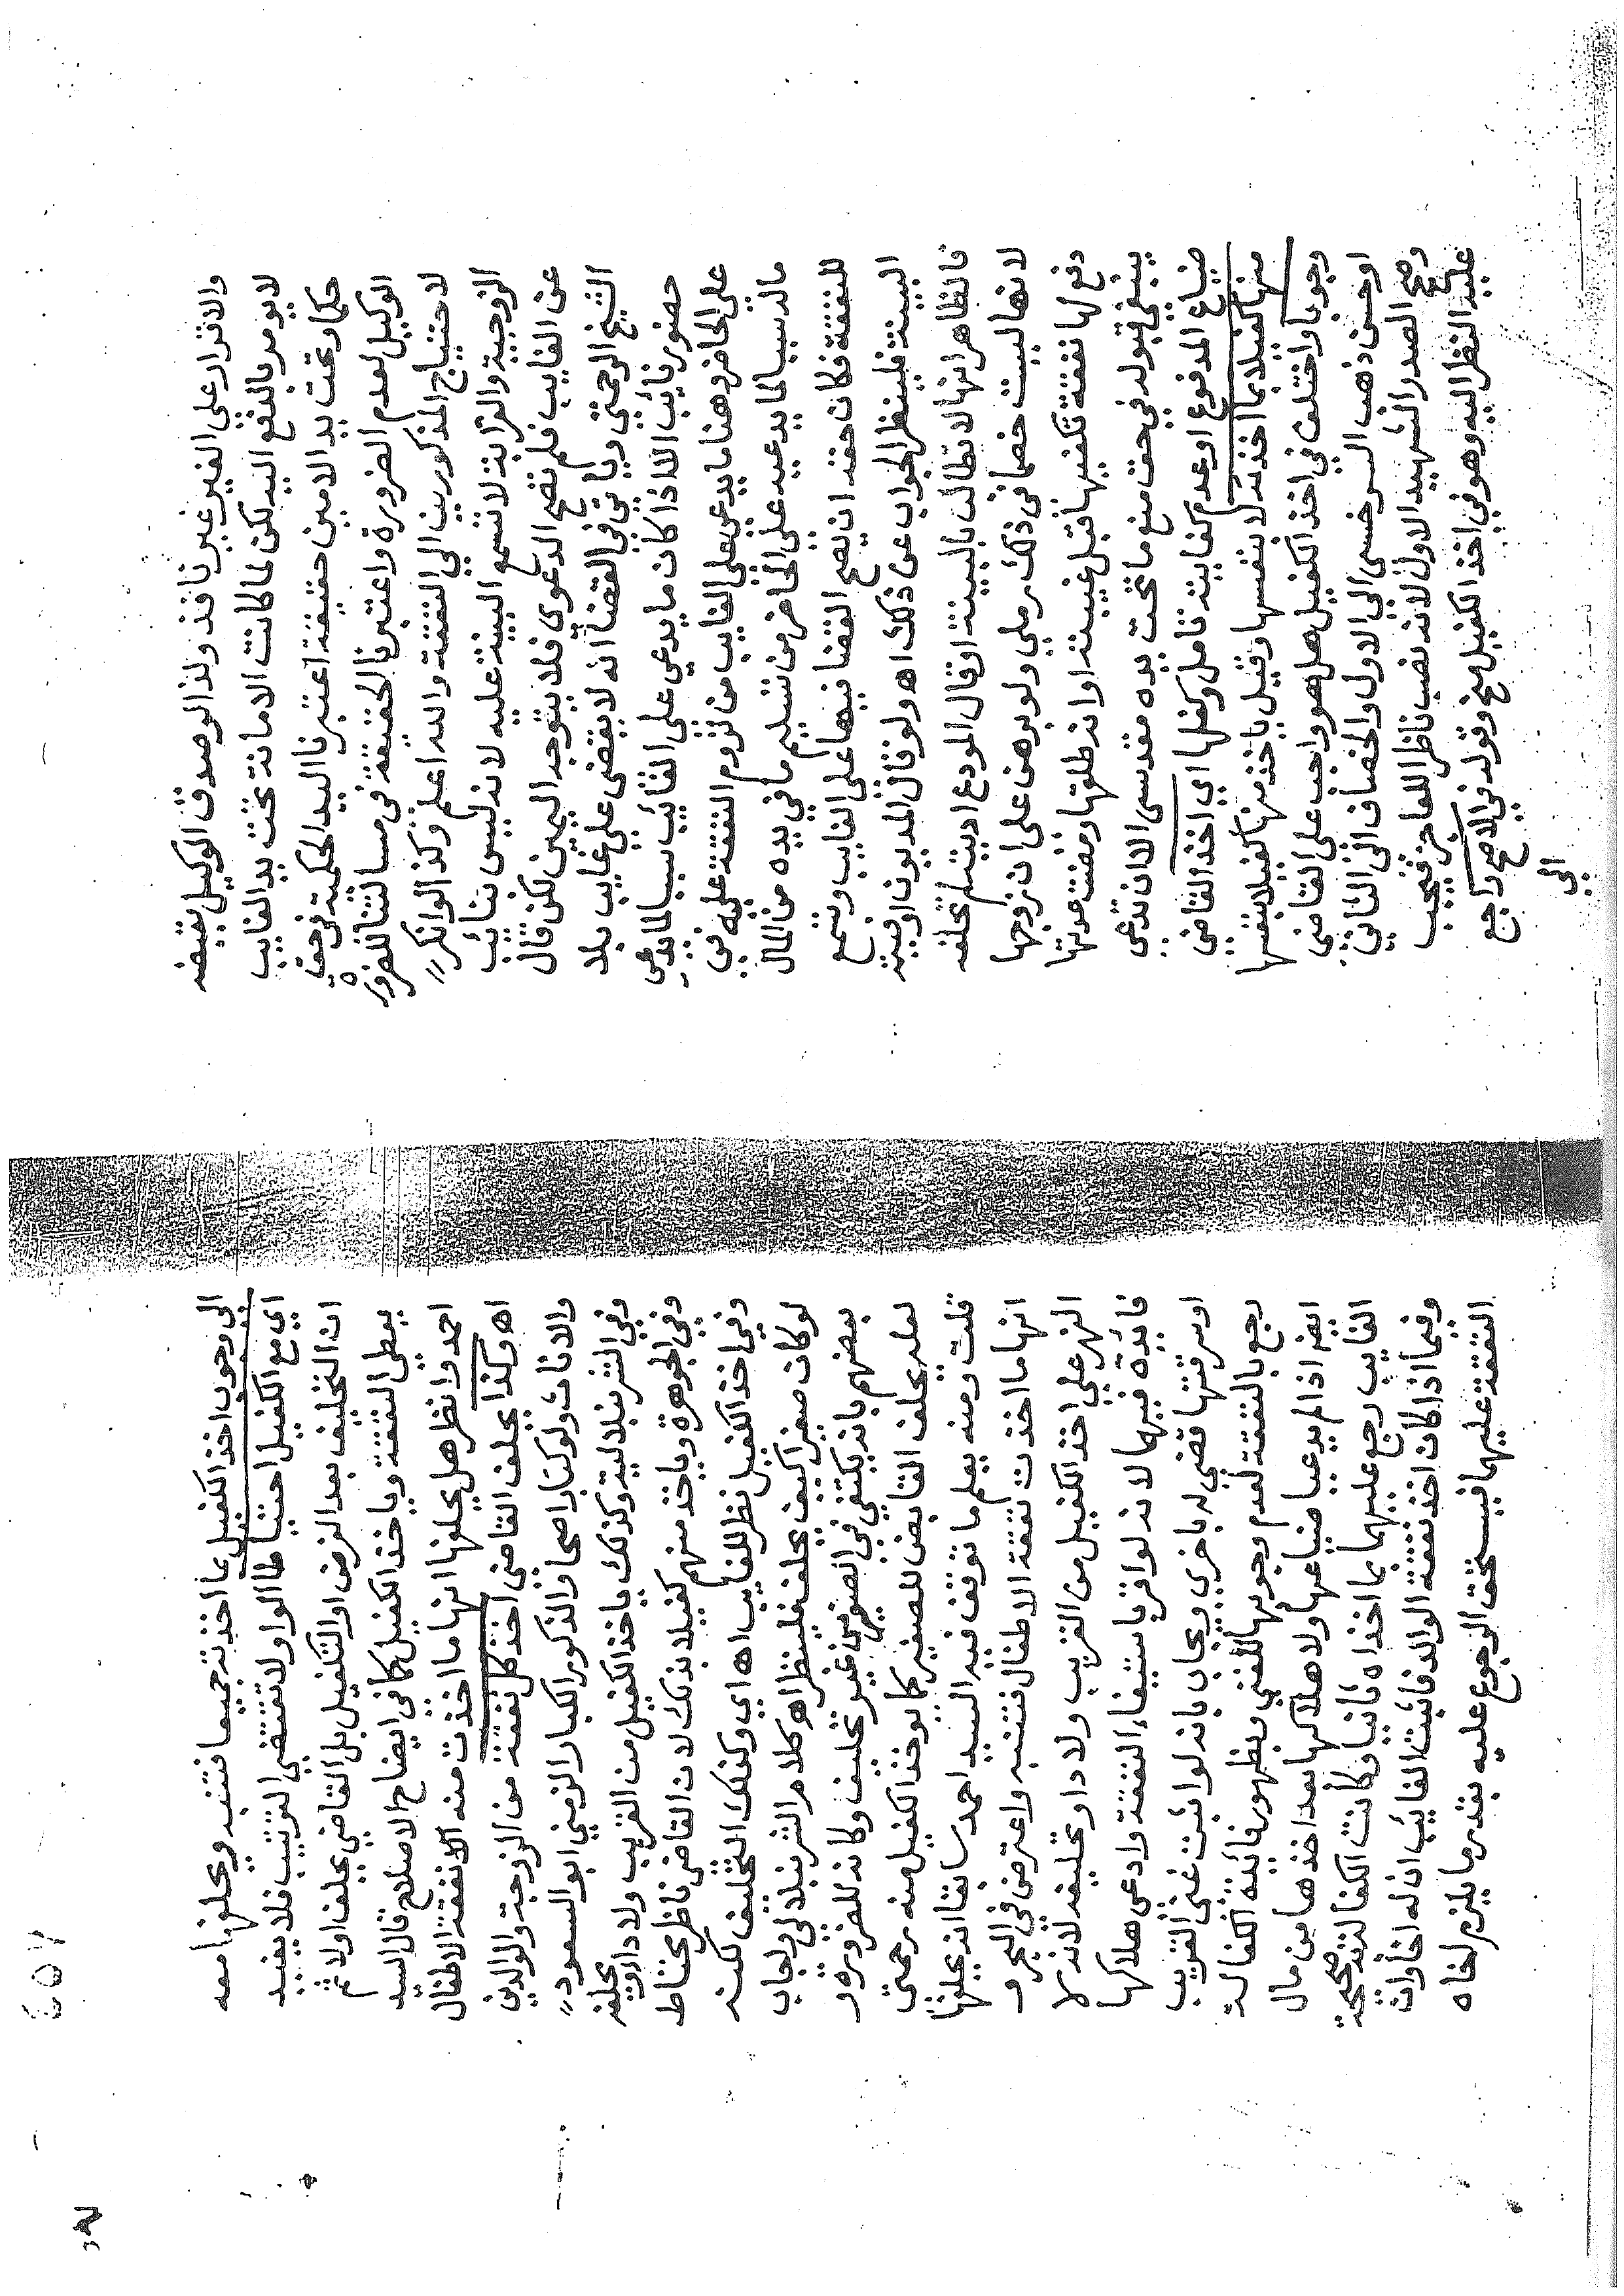 والاقرار علي الغير غير نافذ ولذا لو صدق الوكيل بقبضه
لا يومر بالدفع اليه لكن لما كانت الامانة تحت يد الغايب
حكما وتحت يد الامين حقيقة اعتبرنا اليد الحكمية في حق
الوكيل لعدم الضرورة واعتبرنا الحقيقة في مسالتنا للضرورة
لاحتياج المذكورين الي النفقة والله اعلم وكذ الو انكر
الزوجية والقرابة لا تسمع البينة عليه لانه ليس بنائب
عن الغايب فلم تصح الدعوي فلا يتوجه اليمين لكن قال
الشيخ الرحمتي وياتي في القضا انه لا يقضي علي غايب بلا
حضور نايب الا اذا كان ما يدعي على الغائب سببا لما يدعي
علي الحاضر وهنا ما يدعي علي الغايب من لزوم النفقة عليه في
ماله سببا لما يدعيه علي الحاضر من تسليم ما في يده من المال
للنفقة فكان حقه ان يصح القضا فيها على الغايب وتسمع
البينة فلينظر الجواب عن ذلك اهـ ولو قال المديون اوفيته
فالظاهر انها لا تطالب بالبينة او قال المودع اديته لم تحلفه
لانها ليست خصما في ذلك رملي ولو برهن علي ان زوجها
دفع لها نفقة تكفيها قبل غيبته او انه طلقها ومضت عدتها
ينبغي قبوله في حق منع ما تحت يده مقدسي الا ان تدعي
ضياع المدفوع او عدم كفايته تامل وكفلها اي اخذ القاضي
منها كفيلا بما اخذته لا بنفسها وقيل ياخذ منها كفيلا بنفسها
وجوبا واختلف في اخذ الكفيل هل هو واجب على القاضي
او حسن ذهب السرخسي الي الاول والخصاف الي الثاني
وصحح الصدر الشهيد الاول لانه نصب ناظرا للعاجز فيجب
عليه النظر اليه وهو في اخذ الكفيل منح وقوله في الاصح راجع
الي
الي وجوب اخذ الكفيل بما اخذته جميعا فتنبه ويحلفها معه
اي مع الكفيل احتياطا الواو لا تقتضي الترتيب فلا يفيد
ان التحليف بعد الفرض او التكفيل بل القاضي يحلف اولا ثم
يعطي النفقة وياخذ الكفيل كما في ايضاح الاصلاح قال السيد
احمد وانظر هل يحلفها انها ما اخذت منه الا نفقة الاطفال
اهـ وكذا يحلف القاضي اخذ كل نفقة من الزوجة والوالدين
والاناث ولو كبارا صحاو الذكور الكبار الزمني ابو السعود
وفي الشرنبلالية وكذلك ياخذ الكفيل من القريب ولادا او يحلفه
وفي الجوهرة وياخذ منهم كفيلا بذلك لان القاضي ناظر محتاط
وفي اخذ الكفيل نظر للغايب اهـ اي وكذلك التحليف لكنه
لو كان صغيرا كيف يحلف فلينظر اهـ كلام الشرنبلالي واجاب
بعضهم بانه يكتفي في الصغير من غير تحليف وكانه للضرورة و
لعله يحلف القابض للصغير كما يوخذ الكفيل منه رحمتي
قلت ومنه يعلم ما توقف فيه السيد احمد سابقا انه يحلفها
انها ما اخذت نفقة الاطفال فتنبه واعترض في البحر و
النهر علي اخذ الكفيل من القريب ولادا وتحليفه لانه لا
فائدة فيهما لانه لو اقر باستيفاء النفقة وادعي هلاكها
او سرقتها تقضي له باخري ويجاب بانه لو اثبت غني القريب
رجع بالنفقة لعدم وجوبها للغني وبظهور فائدة الكفالة
ايضا اذا لم يدعيا ضياعها ولا هلاكها بعد اخذها من مال
الغايب رجع عليهما بما اخذاه ثانيا وكانت الكفالة صحيحة
وفيما اذا كان اخذ نفقة الوالد فاثبت الغائب ان له اخا وان
النفقة عليهما فيستحق الرجوع عليه بقدر ما يلزم اخاه